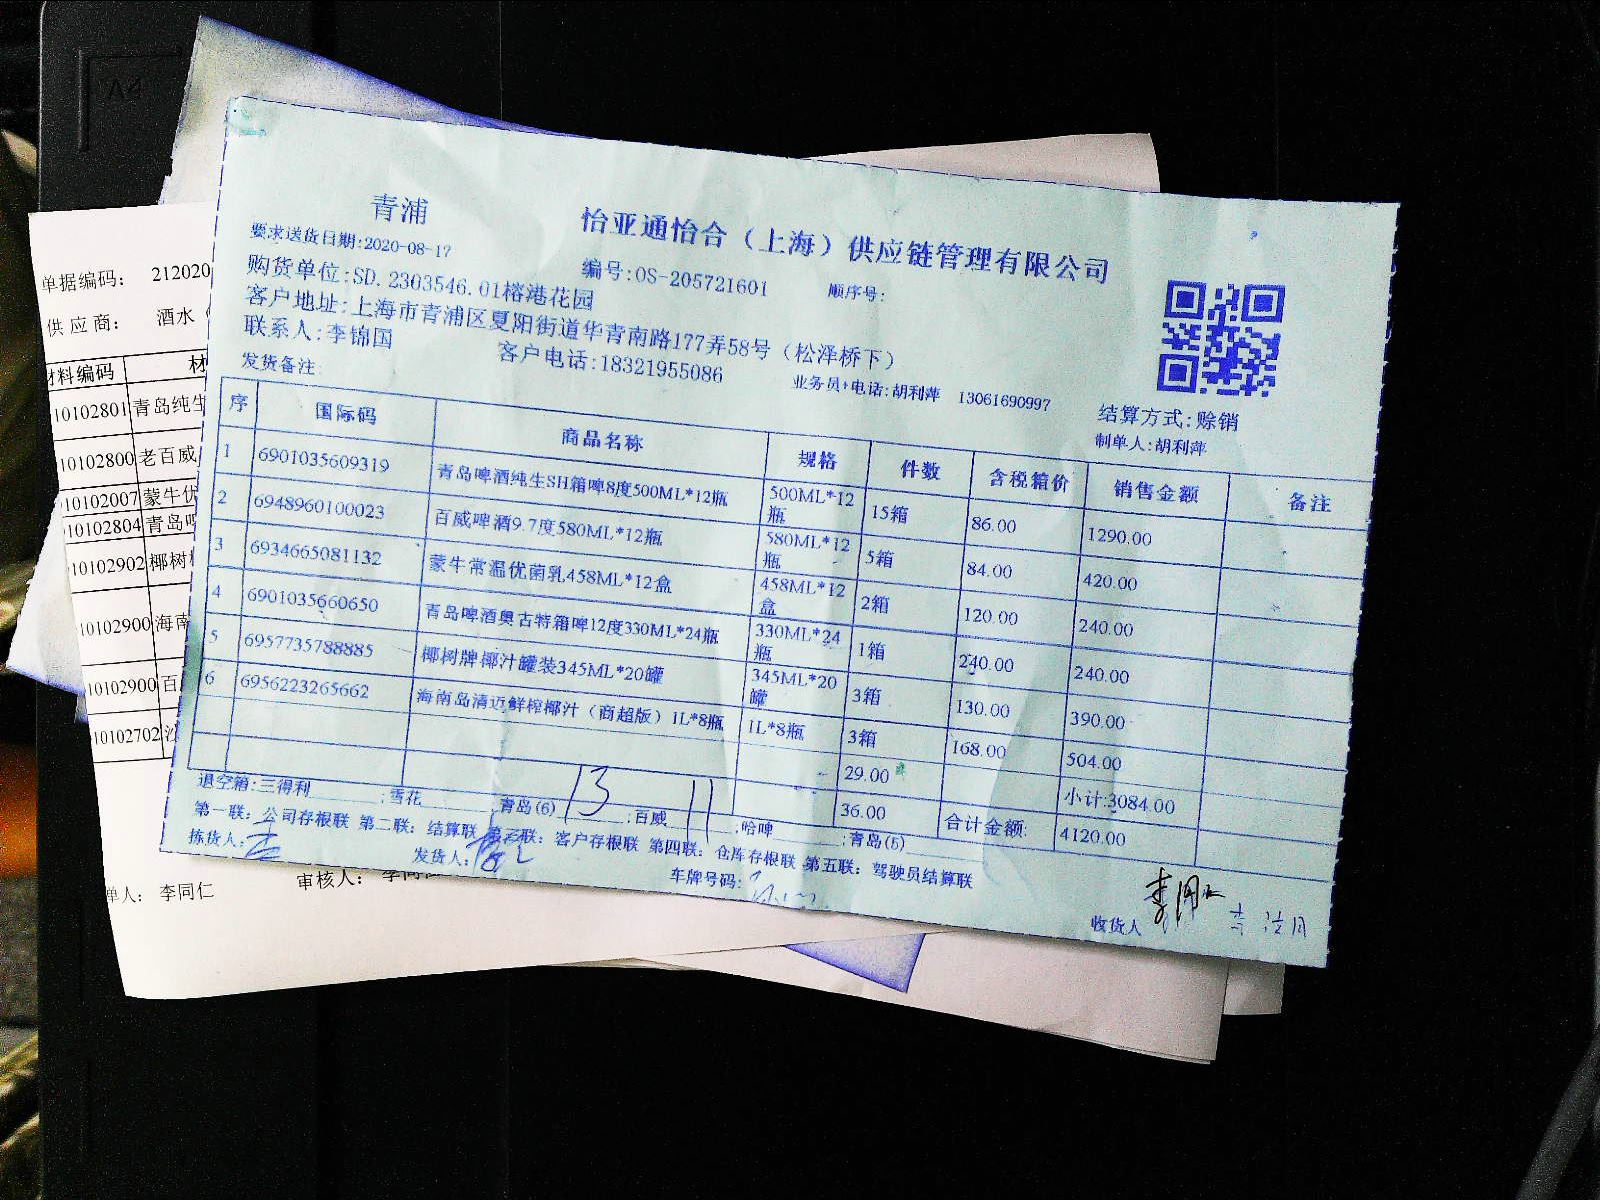 A4
青浦
怡亚通怡合（上海）供应链管理有限公司
要求送货日期:2020-08-17
编号:OS-205721601 顺序号:
购货单位:SD.2303546.01榕港花园
客户地址:上海市青浦区夏阳街道华青南路177弄58号（松泽桥下）
联系人:李锦国 客户电话:18321955086 业务员+电话:胡利萍 13061690997 结算方式:赊销
发货备注: 制单人:胡利萍
序 国际码 商品名称 规格 件数 含税箱价 销售金额 备注
1 6901035609319 青岛啤酒纯生SH箱啤8度500ML*12瓶 500ML*12瓶 15箱 86.00 1290.00
2 6948960100023 百威啤酒9.7度580ML*12瓶 580ML*12瓶 5箱 84.00 420.00
3 6934665081132 蒙牛常温优菌乳458ML*12盒 458ML*12盒 2箱 120.00 240.00
4 6901035660650 青岛啤酒奥古特箱啤12度330ML*24瓶 330ML*24瓶 1箱 240.00 240.00
5 6957735788885 椰树牌椰汁罐装345ML*20罐 345ML*20罐 3箱 130.00 390.00
6 6956223265662 海南岛清迈鲜榨椰汁（商超版）1L*8瓶 1L*8瓶 3箱 168.00 504.00
29.00 小计:3084.00
36.00 合计金额: 4120.00
退空箱:三得利 ;雪花 ;青岛(6) 13 ;百威 11 ;哈啤 ;青岛(5)
第一联：公司存根联 第二联：结算联 第三联：客户存根联 第四联：仓库存根联 第五联：驾驶员结算联
拣货人: 发货人: 车牌号码: 收货人
单据编码： 212020
供 应 商： 酒水
材料编码 材
10102801 青岛纯生
10102800 老百威
10102007 蒙牛优
10102804 青岛啤
10102902 椰树
10102900 海南
10102900 百
10102702
单人： 李同仁 审核人：